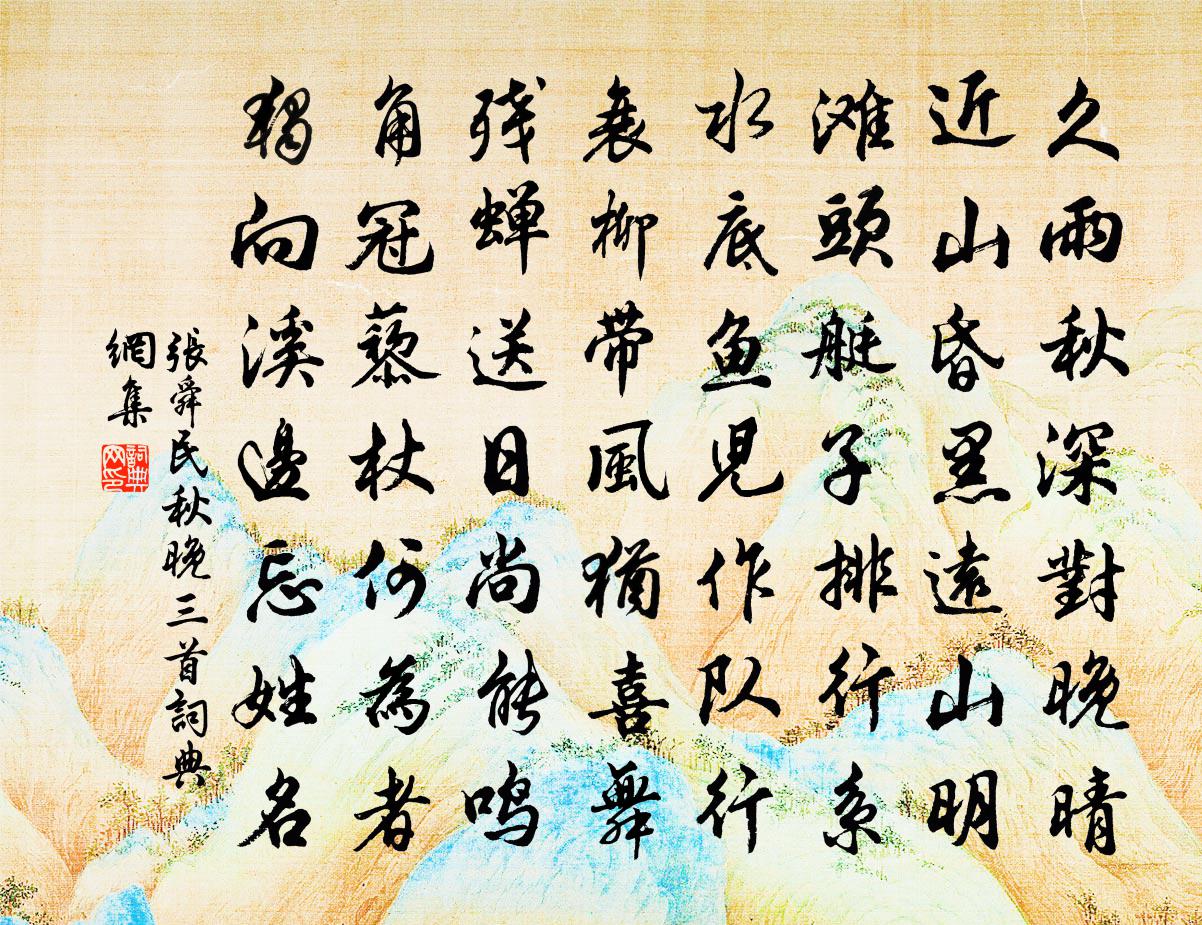 久雨秋深對晚晴
近山昏黑遠山明
滩頭艇子排行系
水底鱼児作队行
衰柳带風猶喜舞
残蝉送日尚能鳴
角冠藜杖何為者
獨向溪邊忘姓名
張舜民秋晚三首詞典
網集
詞典网印